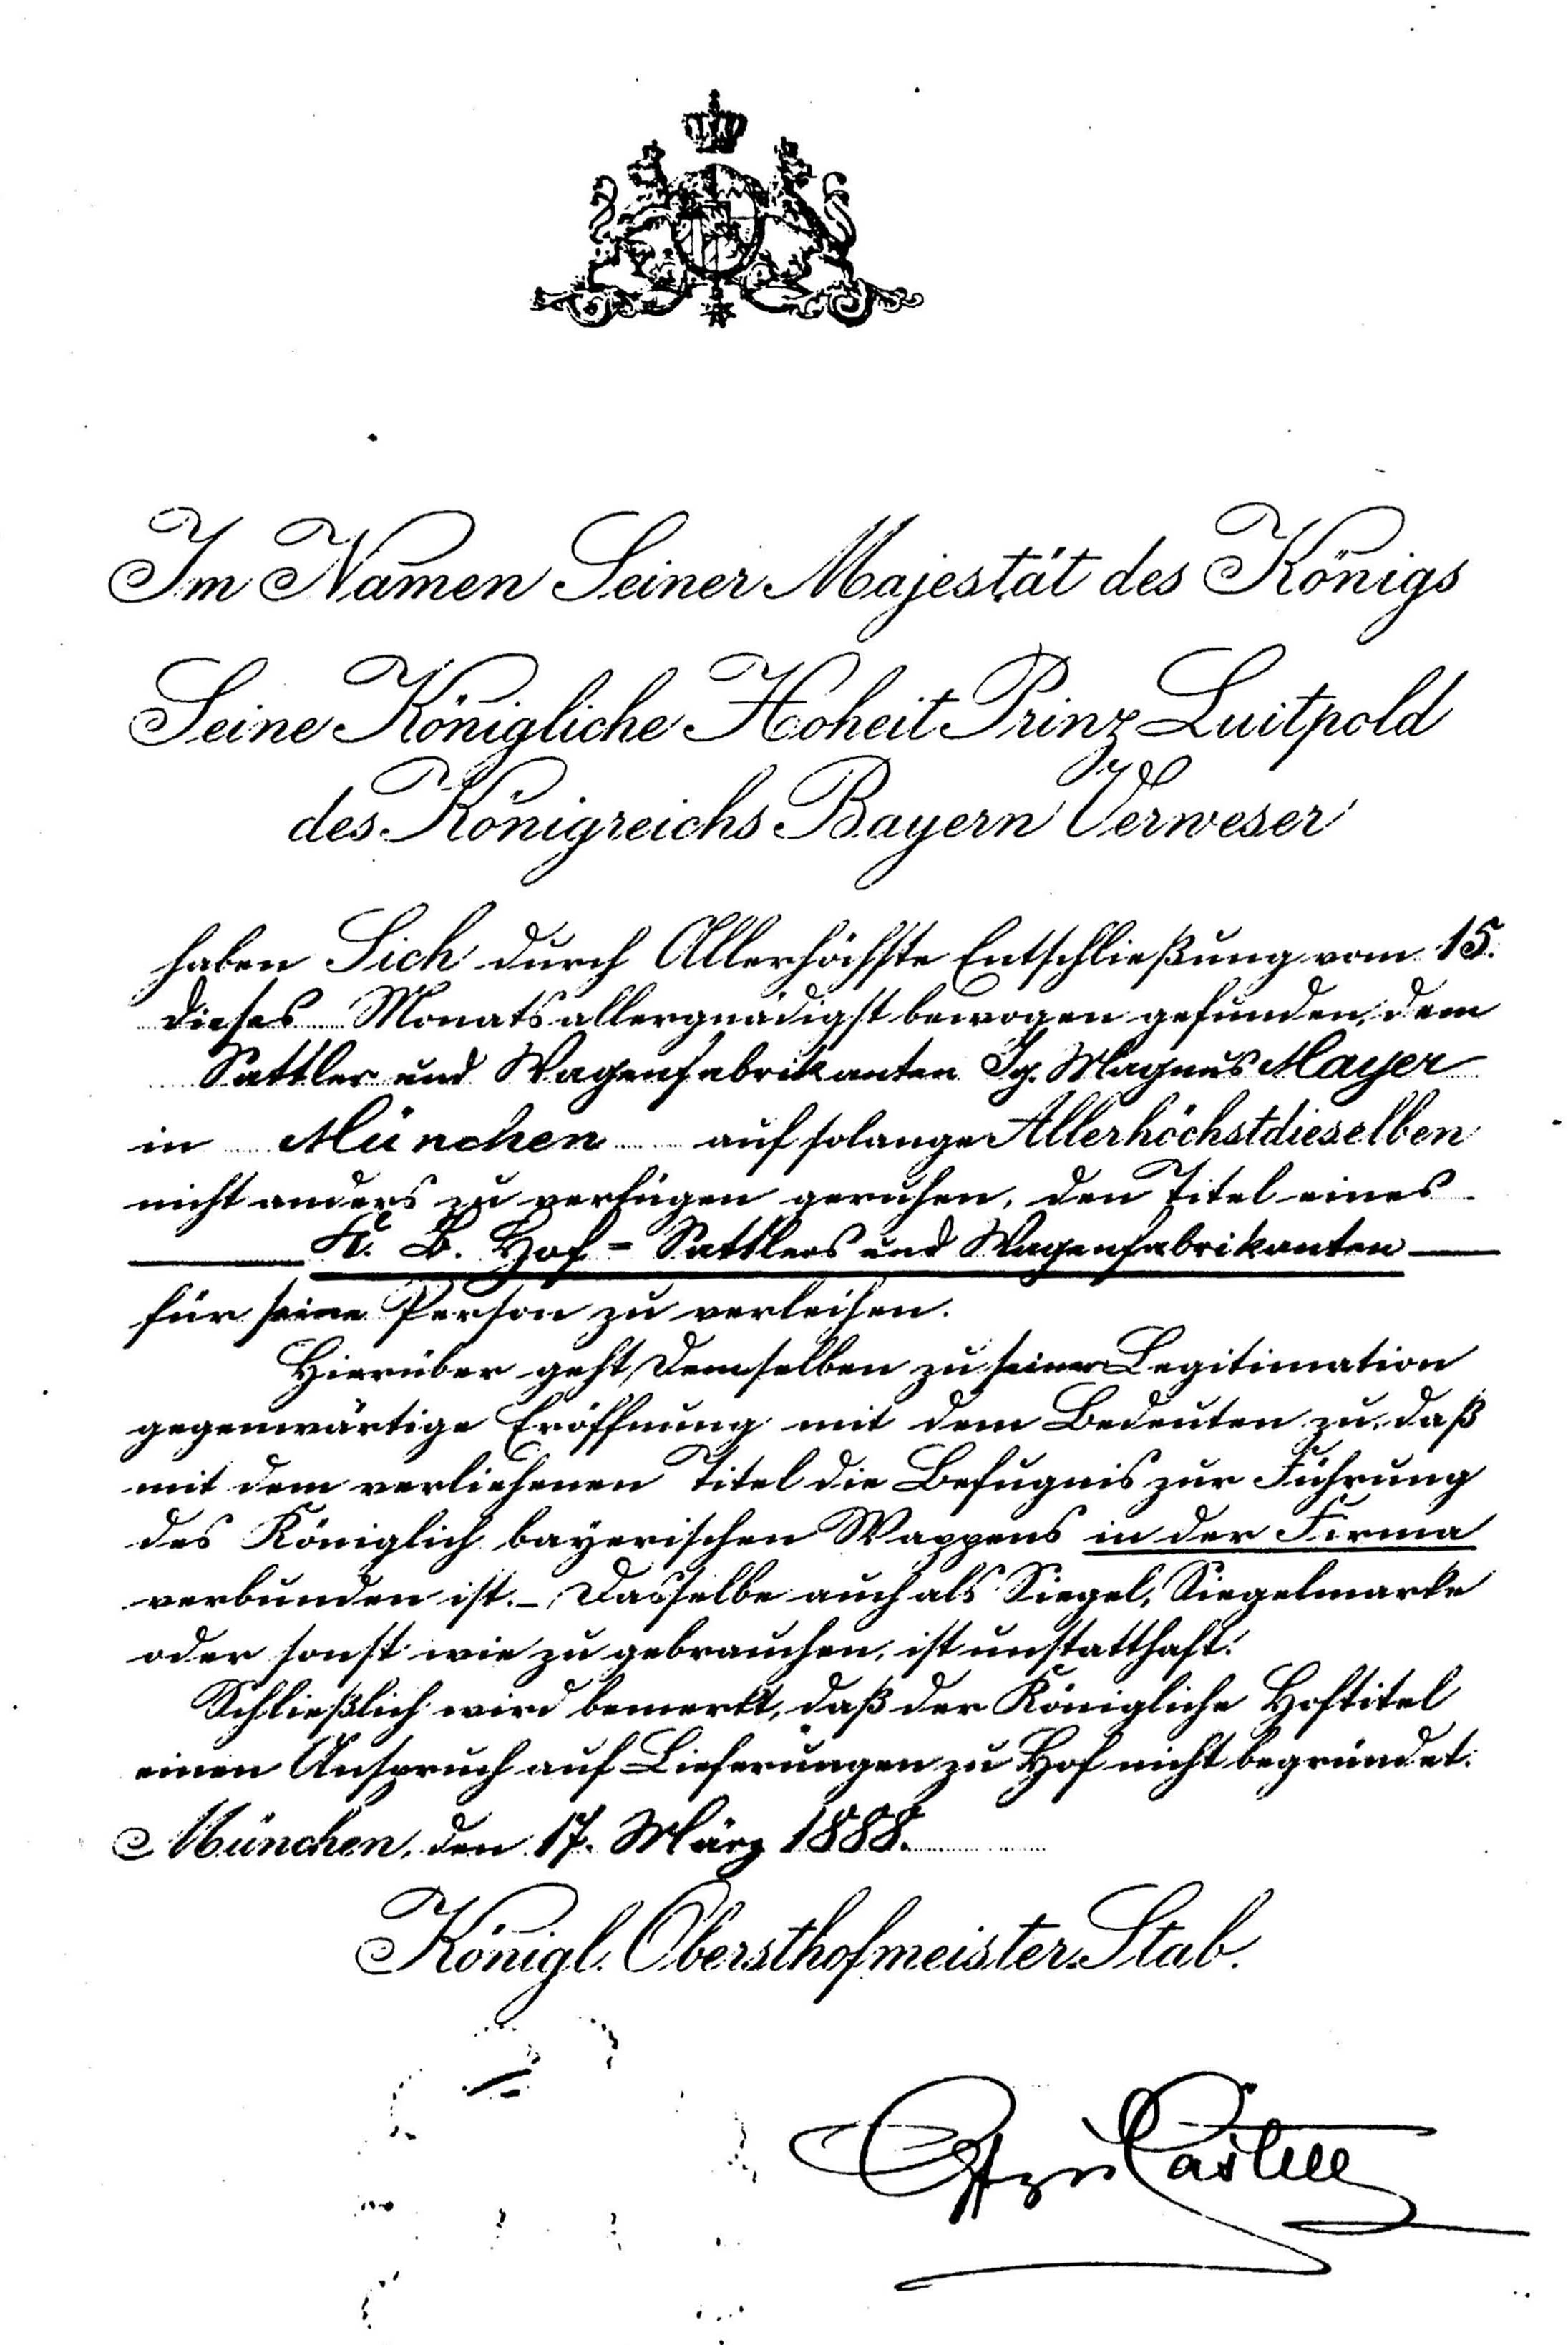 Im Namen Seiner Majestät des Königs
Seine Königliche Hoheit Prinz Luitpold
des Königreichs Bayern Verweser
haben Sich durch Allerhöchste Entschließung vom 15.
dieses Monats allergnädigst bewogen gefunden, dem
Sattler und Wagenfabrikanten Ig. Magnus Mayer
in München auf solange Allerhöchstdieselben
nicht anders zu verfügen geruhen, den Titel eines
K. B. Hof = Sattlers und Wagenfabrikanten
für seine Person zu verleihen.
Hierüber geht Demselben zu seiner Legitimation
gegenwärtige Eröffnung mit dem Bedeuten zu, daß
mit dem verliehenen Titel die Befugnis zur Führung
des Königlich bayerischen Wappens in der Firma
verbunden ist. – Dasselbe auch als Siegel, Siegelmarke
oder sonst wie zu gebrauchen, ist unstatthaft.
Schließlich wird bemerkt, daß der Königliche Hoftitel
einen Anspruch auf Lieferungen zu Hof nicht begründet.
München, den 17. März 1888.
Königl. Obersthofmeister-Stab.
Castell